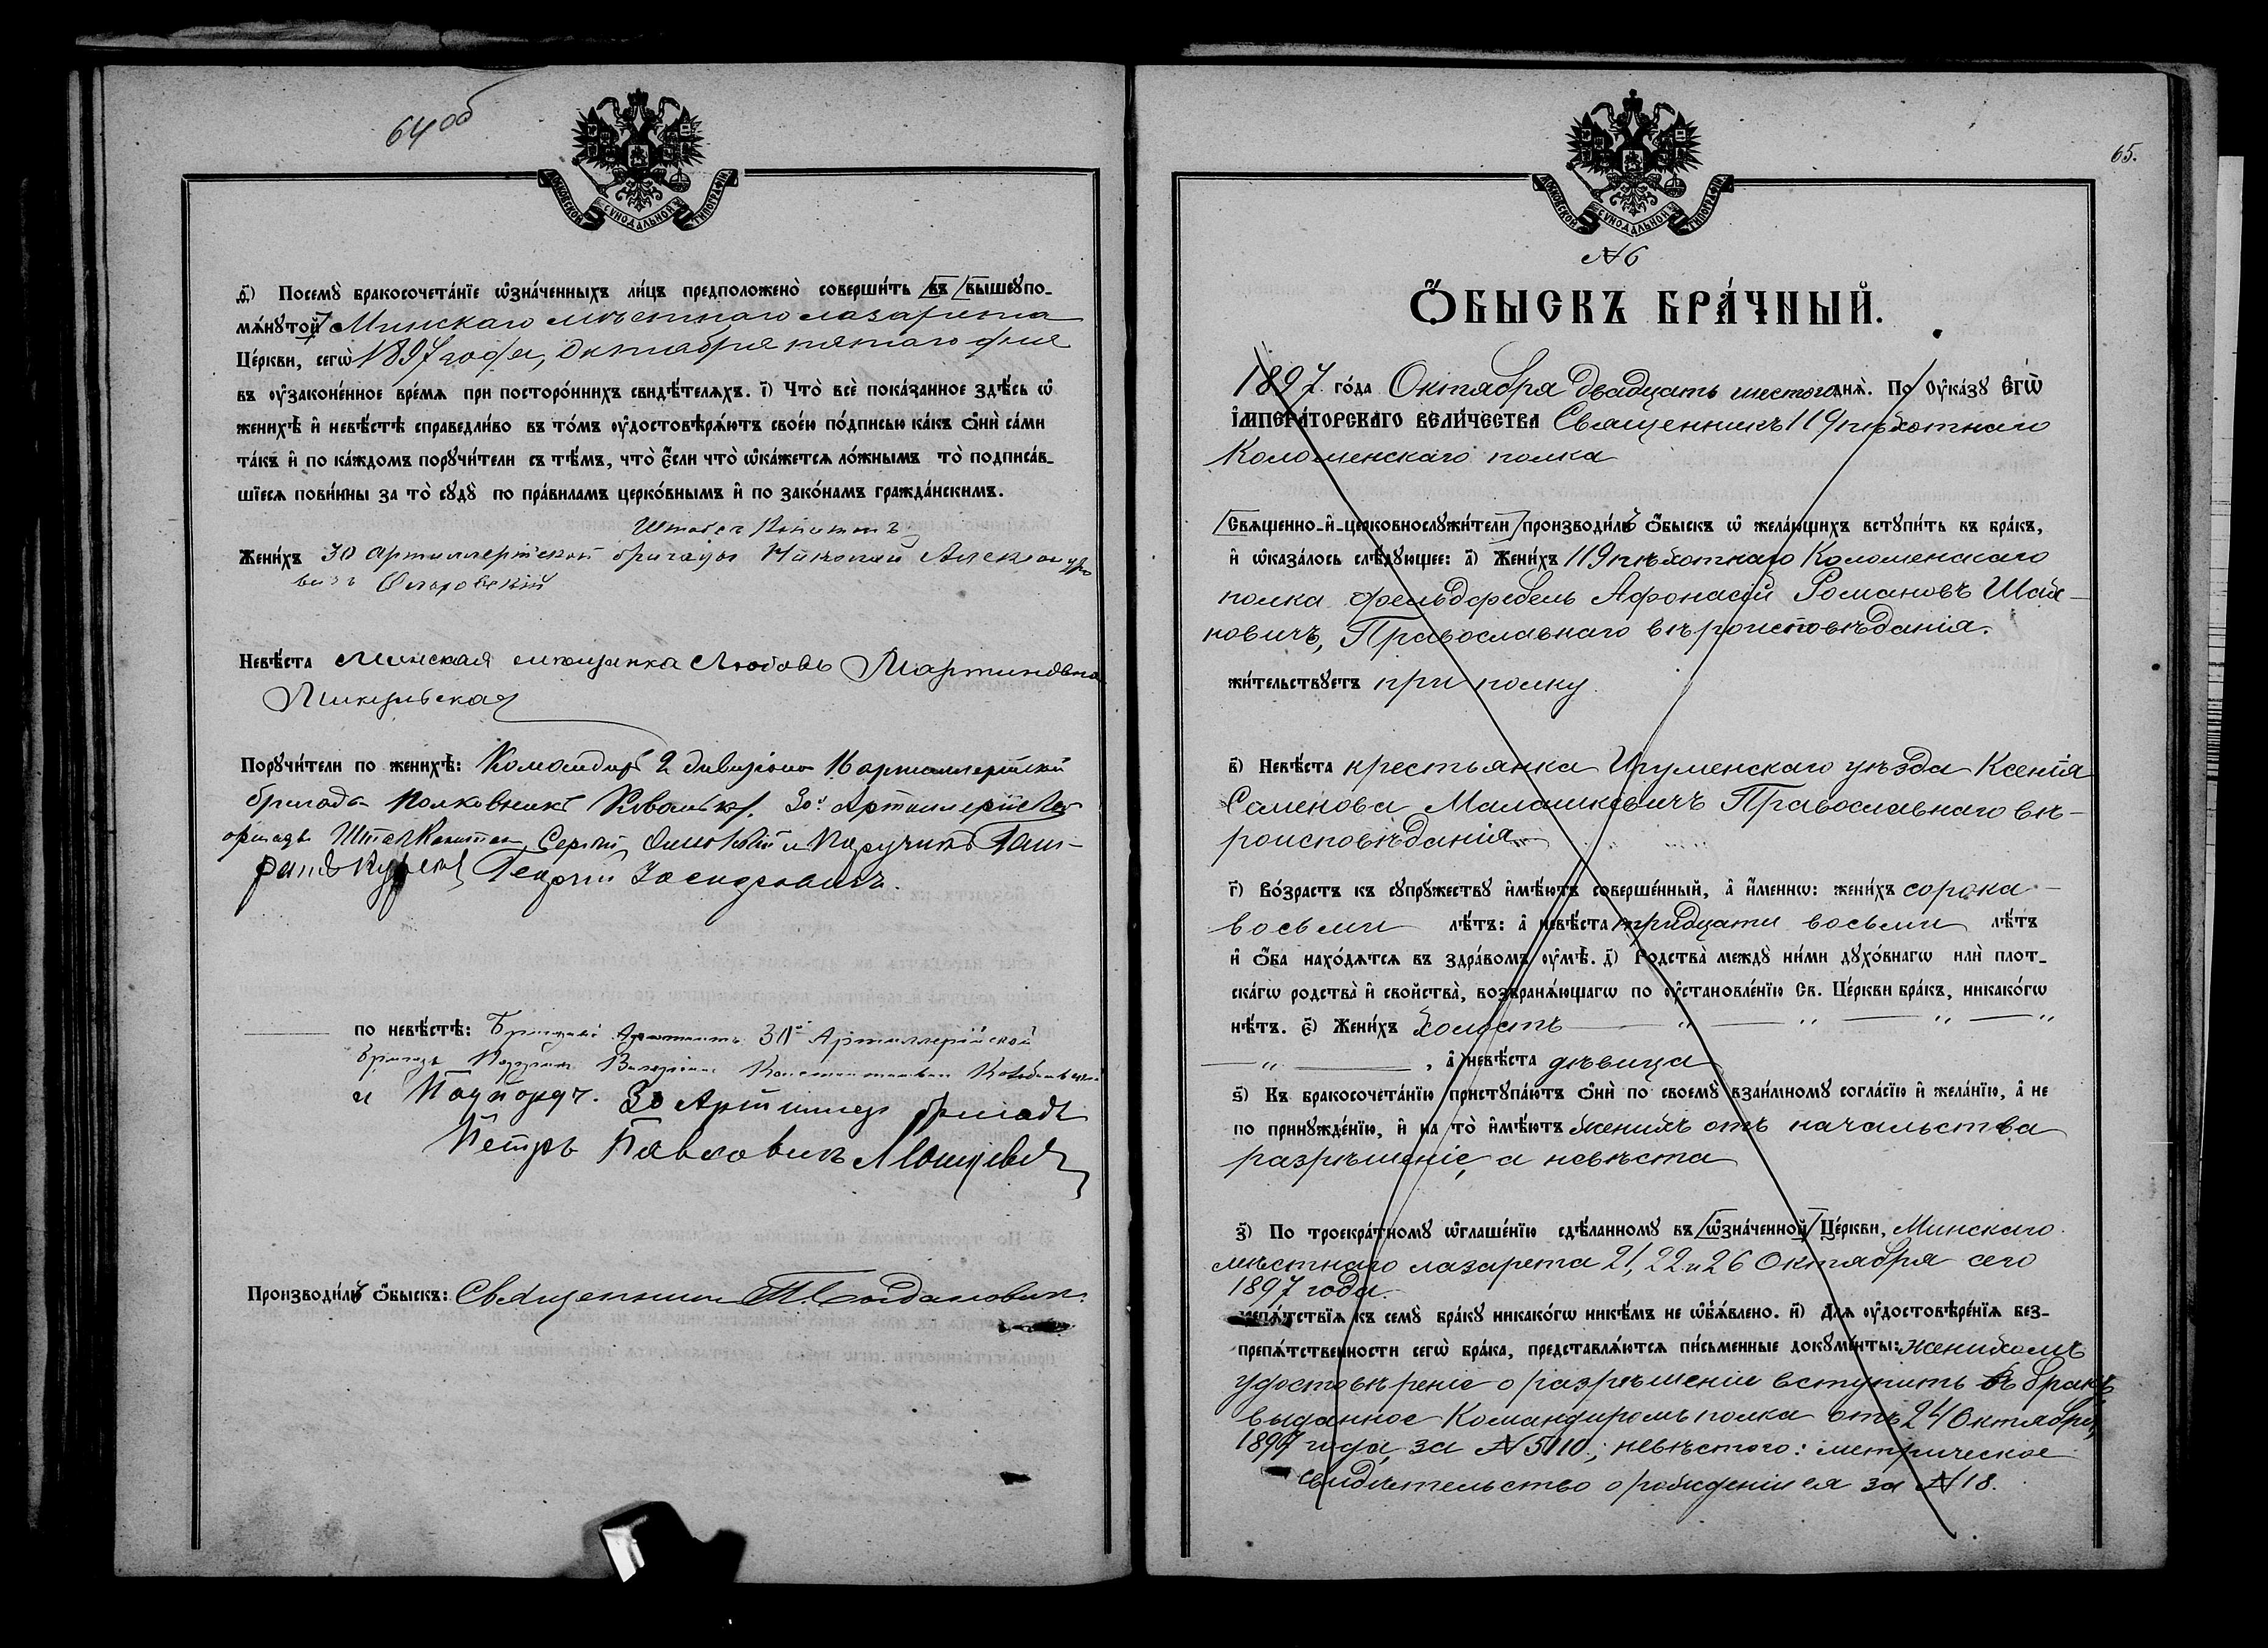 64 об
МОСКОВСКОЙ СѴНОДАЛЬНОЙ ТИПОГРАФІИ
ѳ҃) Посемꙋ̀ бракосочета́нїе ѡ҆зна́ченныхъ ли́цъ предположено̀ соверши́ть въ вышеꙋпо-
мѧ́нꙋтой Минскаго мѣстнаго лазарета
Це́ркви, сегѡ̀ 1897 года, Октября пятаго дня
въ ᲂу҆зако́ненное вре́мѧ при посторо́ннихъ свидѣ́телѧхъ. і҃) Что̀ всѐ пока́занное здѣ́сь ѡ҆
женихѣ̀ и҆ невѣ́стѣ справедли́во въ то́мъ ᲂу҆достовѣрѧ́ютъ свое́ю по́дписью ка́къ ѻ҆нѝ са́ми
та́къ и҆ по ка́ждомъ порꙋчи́тели съ тѣ́мъ, что̀ є҆́сли что̀ ѡ҆ка́жетсѧ ло́жнымъ то̀ подписа́в-
шїесѧ пови́нны за то̀ сꙋдꙋ̀ по пра́виламъ церко́внымъ и҆ по зако́намъ гражда́нскимъ.
Штабсъ Капитанъ
Жени́хъ 30 артиллерійской бригады Николай Александро
вичъ
Невѣ́ста Минская мѣщанка Любовь Мартиновна
Микульская
Порꙋчи́тели по женихѣ̀: Командиръ 2 дивизіона 16 артиллерійской
бригады Полковникъ 30й Артиллерійской
бригады Штабс Капитан Сергѣй и Поручикъ
Георгій
по невѣ́стѣ: Бригадный Адъютантъ 30й Артиллерійской
бригады Поручикъ Константинович
и Подпоруч. 30 Артиллер бригады
Петръ Павловичъ
Производи́лъ ѻ҆́быскъ: Священникъ П. Богданович.
65.
МОСКОВСКОЙ СѴНОДАЛЬНОЙ ТИПОГРАФІИ
№ 6
Ѻ҆́БЫСКЪ БРА́ЧНЫЙ.
1897 го́да Октября двадцать шестого днѧ̀. По Оу҆ка́зꙋ Є҆ГѠ̀
І҆МПЕРА́ТОРСКАГО ВЕЛИ́ЧЕСТВА Священникъ 119 пѣхотнаго
Коломенскаго полка
Свѧще́нно-и҆-церковнослꙋжи́тели производи́лъ ѻ҆́быскъ ѡ҆ жела́ющихъ встꙋпи́ть въ бра́къ,
и҆ ѡ҆каза́лось слѣ́дꙋющее: а҃) Жени́хъ 119 пѣхотнаго Коломенскаго
полка фельдфебель Афонасій Романовъ Шаб-
ковичъ, Православнаго вѣроисповѣданія.
жи́тельствꙋетъ при полку.
в҃) Невѣ́ста крестьянка Игуменскаго уѣзда Ксенія
Семенова Малашкевичъ Православнаго вѣ-
роисповѣданія
г҃) Во́зрастъ къ сꙋпрꙋ́жествꙋ и҆мѣ́ютъ соверше́нный, а҆ и҆́меннѡ: жени́хъ сорока
восьми лѣ́тъ: а҆ невѣ́ста тридцати восьми лѣ́тъ
и҆ ѻ҆́ба нахо́дѧтсѧ въ здра́вомъ ᲂу҆мѣ̀. д҃) Родства̀ междꙋ̀ ни́ми дꙋхо́внагѡ и҆лѝ плот-
ска́гѡ родства̀ и҆ свойства̀, возбранѧ́ющагѡ по ᲂу҆становле́нїю Св. Це́ркви бра́къ, никако́гѡ
нѣ́тъ. є҃) Жени́хъ холостъ — „ — „ — „ — „
— „ — , а҆ невѣ́ста дѣвица
ѕ҃) Къ бракосочета́нїю пристꙋпа́ютъ ѻ҆нѝ по своемꙋ̀ взаи́мномꙋ согла́сїю и҆ жела́нїю, а҆ не
по принꙋжде́нїю, и҆ на то̀ и҆мѣ́ютъ женихъ отъ начальства
разрѣшеніе, а невѣста
з҃) По троекра́тномꙋ ѡ҆глаше́нїю сдѣ́ланномꙋ въ ѡ҆зна́ченной Це́ркви, Минскаго
мѣстнаго лазарета 21, 22 и 26 Октября сего
1897 года.
препѧ́тствїѧ къ семꙋ̀ бра́кꙋ никако́гѡ никѣ́мъ не ѡ҆бъѧ́влено. и҃) Длѧ ᲂу҆достовѣре́нїѧ без-
препѧ́тственности сегѡ̀ бра́ка, представлѧ́ютсѧ пи́сьменные докꙋме́нты: женихомъ
удостовѣреніе о разрѣшеніи вступить въ бракъ
выданное Командиромъ полка отъ 24 Октября
1897 года, за № 5110; невѣстою: метрическое
свидѣтельство о рожденіи ея за № 18.